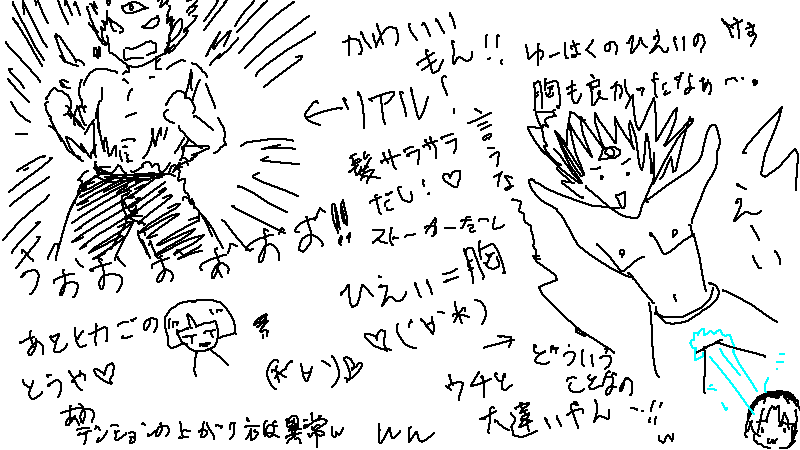 かわいい
もん!!
←リアル!
髪サラサラ
だし!♡
ストーカーだし
言うな
ひえい=胸
♡(´∀`*)
うおおおおおお!!
あとヒカごの
とうや♡
(*´∀`)
あの
テンションの上がり方は異常w
ゆーはくのひえいの
胸も良かったなぁ〜。
えーい
→どういう
ことなの
ウチと
大違いやん〜!!
w